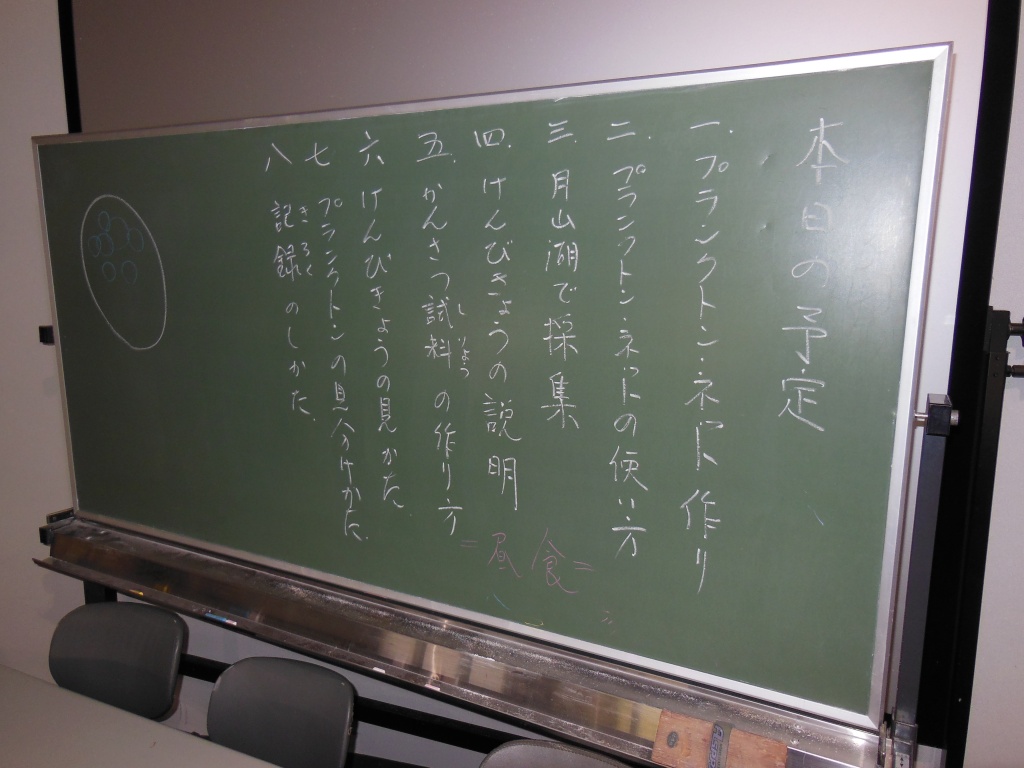 本日の予定
一.プランクトン・ネット作り
二.プランクトンネットの使い方
三.月山湖で採集
四.けんびきょうの説明
=昼食=
五.かんさつ試料の作り方
しりょう
六けんびきょうの見かた
七プランクトンの見分けかた
八記録のしかた
きろく